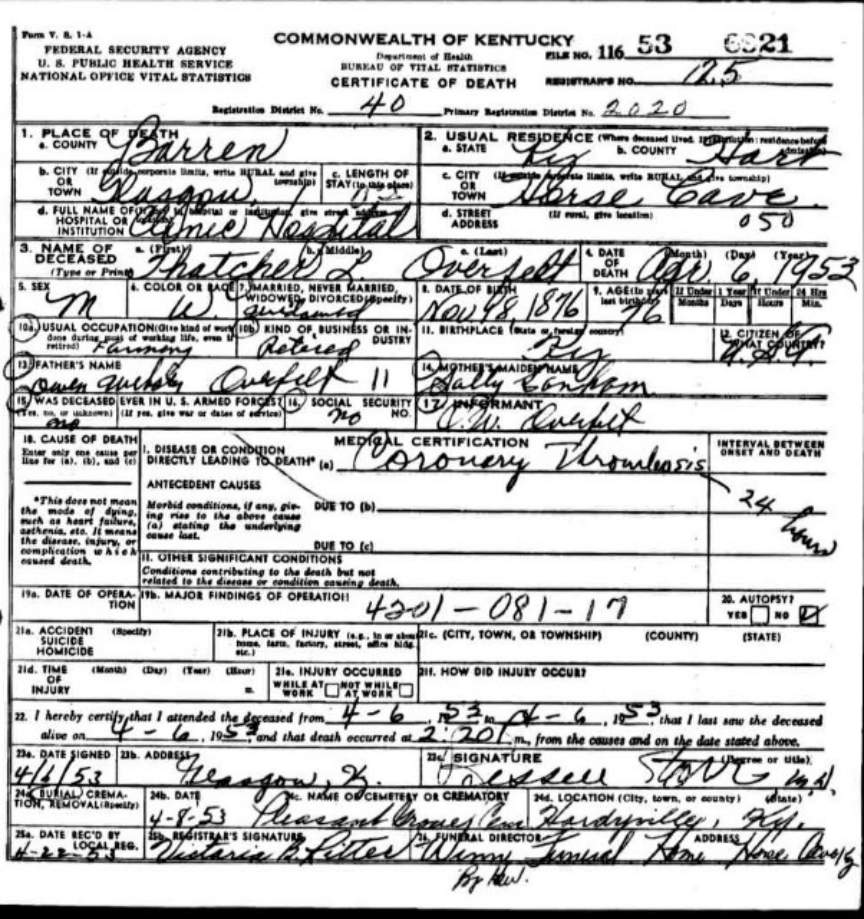 Form V. S. 1-A
FEDERAL SECURITY AGENCY
U. S. PUBLIC HEALTH SERVICE
NATIONAL OFFICE VITAL STATISTICS
COMMONWEALTH OF KENTUCKY
Department of Health
BUREAU OF VITAL STATISTICS
CERTIFICATE OF DEATH
FILE NO. 116 53
REGISTRAR'S NO. 125
Registration District No. 40 Primary Registration District No. 2020
1. PLACE OF DEATH
a. COUNTY Barren
2. USUAL RESIDENCE (Where deceased lived. If institution: residence before admission)
a. STATE Ky b. COUNTY Hart
b. CITY OR TOWN (If outside corporate limits, write RURAL and give township) Glasgow
c. LENGTH OF STAY (in this place)
c. CITY OR TOWN (If outside corporate limits, write RURAL and give township) Horse Cave.
d. FULL NAME OF HOSPITAL OR INSTITUTION (If not in hospital or institution, give street address) Clinic Hospital
d. STREET ADDRESS (If rural, give location) 050
3. NAME OF DECEASED (Type or Print) a. (First) Thatcher b. (Middle) L. c. (Last) Overfelt
4. DATE OF DEATH (Month) (Day) (Year) Apr 6, 1953
5. SEX M
6. COLOR OR RACE W.
7. MARRIED, NEVER MARRIED, WIDOWED, DIVORCED (Specify) Widowed
8. DATE OF BIRTH Nov 18, 1876
9. AGE (In years last birthday) 76
If Under 1 Year Months Days
If Under 24 Hrs Hours Min.
10a. USUAL OCCUPATION (Give kind of work done during most of working life, even if retired) Farming
10b. KIND OF BUSINESS OR INDUSTRY Retired
11. BIRTHPLACE (State or foreign country) Ky
12. CITIZEN OF WHAT COUNTRY?
13. FATHER'S NAME
Owen Overfelt 11
14. MOTHER'S MAIDEN NAME
Sally
15. WAS DECEASED EVER IN U. S. ARMED FORCES?
(Yes, no, or unknown) (If yes, give war or dates of service) no
16. SOCIAL SECURITY NO. no
17. INFORMANT
O.W. Overfelt
18. CAUSE OF DEATH
Enter only one cause per line for (a), (b), and (c)
*This does not mean the mode of dying, such as heart failure, asthenia, etc. It means the disease, injury, or complication which caused death.
MEDICAL CERTIFICATION
I. DISEASE OR CONDITION DIRECTLY LEADING TO DEATH* (a) Coronary Thrombosis
INTERVAL BETWEEN ONSET AND DEATH
24 hours
ANTECEDENT CAUSES
Morbid conditions, if any, giving rise to the above cause (a) stating the underlying cause last.
DUE TO (b)
DUE TO (c)
II. OTHER SIGNIFICANT CONDITIONS
Conditions contributing to the death but not related to the disease or condition causing death.
19a. DATE OF OPERATION
19b. MAJOR FINDINGS OF OPERATION
4201-081-17
20. AUTOPSY?
YES NO
21a. ACCIDENT SUICIDE HOMICIDE (Specify)
21b. PLACE OF INJURY (e.g., in or about home, farm, factory, street, office bldg. etc.)
21c. (CITY, TOWN, OR TOWNSHIP) (COUNTY) (STATE)
21d. TIME OF INJURY (Month) (Day) (Year) (Hour) m.
21e. INJURY OCCURRED
WHILE AT WORK NOT WHILE AT WORK
21f. HOW DID INJURY OCCUR?
22. I hereby certify that I attended the deceased from 4-6, 1953 to 4-6, 1953, that I last saw the deceased
alive on 4-6, 1953, and that death occurred at 2:20 m., from the causes and on the date stated above.
23a. DATE SIGNED 4/6/53
23b. ADDRESS Glasgow, Ky.
23c. SIGNATURE (Degree or title) M.D.
24a. BURIAL, CREMATION, REMOVAL (Specify)
24b. DATE 4-8-53
24c. NAME OF CEMETERY OR CREMATORY Pleasant Grove Cem
24d. LOCATION (City, town, or county) (State) Hardyville, Ky.
25a. DATE REC'D BY LOCAL REG. 4-22-53
25b. REGISTRAR'S SIGNATURE Victoria B. Ritter
26. FUNERAL DIRECTOR ADDRESS
Winn Funeral Home Horse Cave Ky